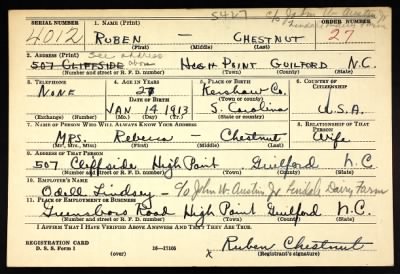 5427 c/o John W. Austin Jr
SERIAL NUMBER 1. NAME (Print) ORDER NUMBER
4012 RUBEN — CHESTNUT 27
(First) (Middle) (Last)
2. ADDRESS (Print) See address above
507 CLIFFSIDE HIGH POINT GUILFORD N.C.
(Number and street or R. F. D. number) (Town) (County) (State)
3. TELEPHONE 4. AGE IN YEARS 5. PLACE OF BIRTH 6. COUNTRY OF CITIZENSHIP
NONE 27 Kershaw Co.
DATE OF BIRTH (Town or county)
JAN 14 1913 S. Carolina U.S.A.
(Exchange) (Number) (Mo.) (Day) (Yr.) (State or country)
7. NAME OF PERSON WHO WILL ALWAYS KNOW YOUR ADDRESS 8. RELATIONSHIP OF THAT PERSON
MRS. Rebecca — Chestnut Wife
(Mr., Mrs., Miss) (First) (Middle) (Last)
9. ADDRESS OF THAT PERSON
507 Cliffside High Point Guilford N.C.
(Number and street or R. F. D. number) (Town) (County) (State)
10. EMPLOYER'S NAME
Odell Lindsay — c/o John W. Austin Jr Lindale Dairy Farm
11. PLACE OF EMPLOYMENT OR BUSINESS
Greensboro Road High Point Guilford N.C.
(Number and street or R. F. D. number) (Town) (County) (State)
I AFFIRM THAT I HAVE VERIFIED ABOVE ANSWERS AND THAT THEY ARE TRUE.
REGISTRATION CARD
D. S. S. Form 1 (over) 16—17105 x Ruben Chestnut
(Registrant's signature)